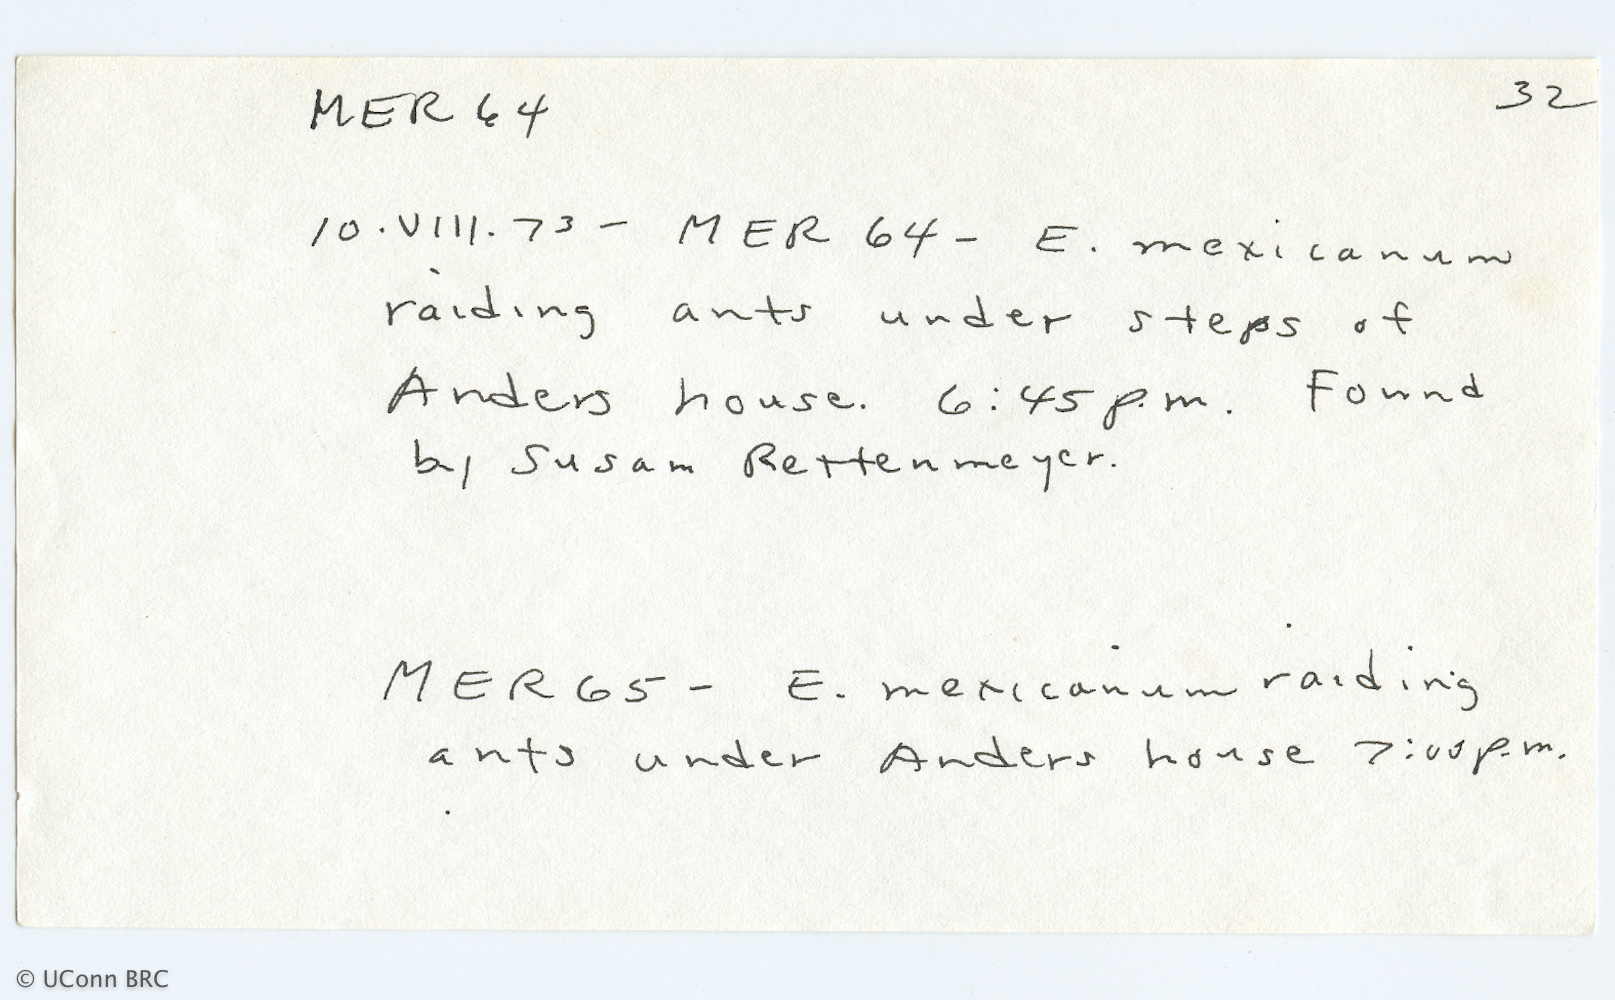 MER 64
32
10.VIII.73 - MER 64 - E. mexicanum
raiding ants under steps of
Anders house. 6:45 p.m. Found
by Susan Rettenmeyer.
MER 65 - E. mexicanum raiding
ants under Anders house 7:00 p.m.
© UConn BRC